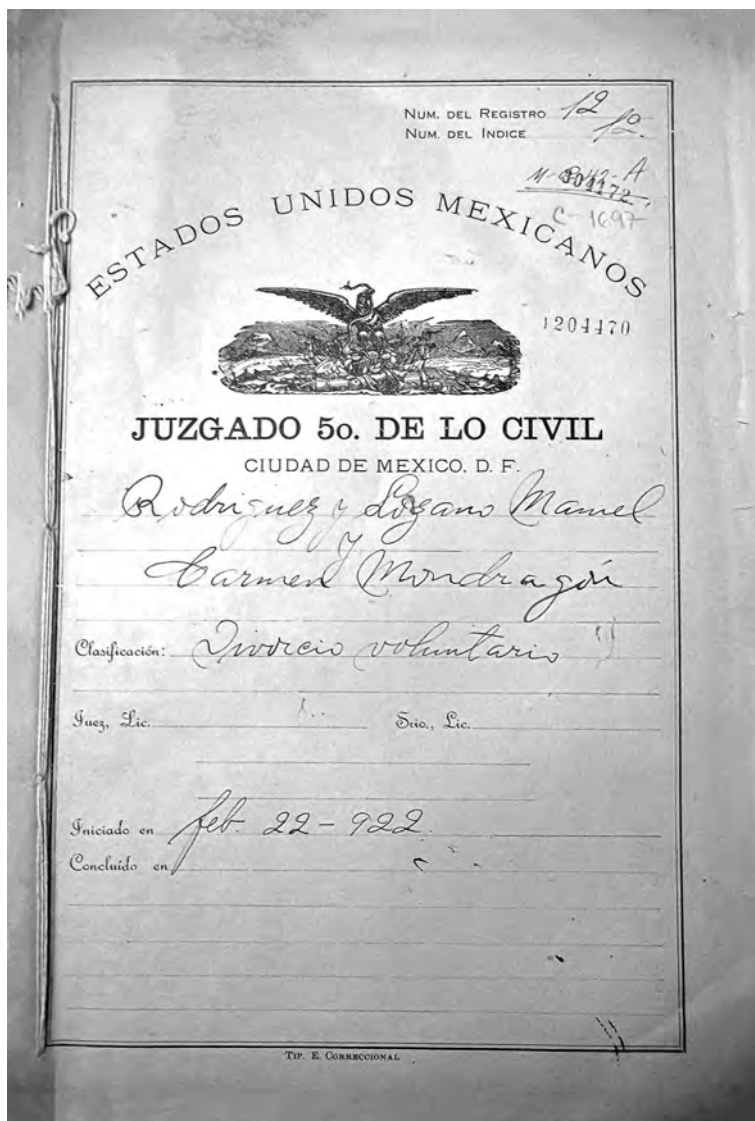 NUM. DEL REGISTRO 12
NUM. DEL INDICE 12.
304172
C-1697
ESTADOS UNIDOS MEXICANOS
1204470
JUZGADO 5o. DE LO CIVIL
CIUDAD DE MEXICO. D. F.
Rodriguez y Lozano Manuel
y
Carmen Mondragón
Clasificación: Divorcio voluntario
Juez, Lic. Srio., Lic.
Iniciado en feb. 22-922.
Concluído en
TIP. E. CORRECCIONAL